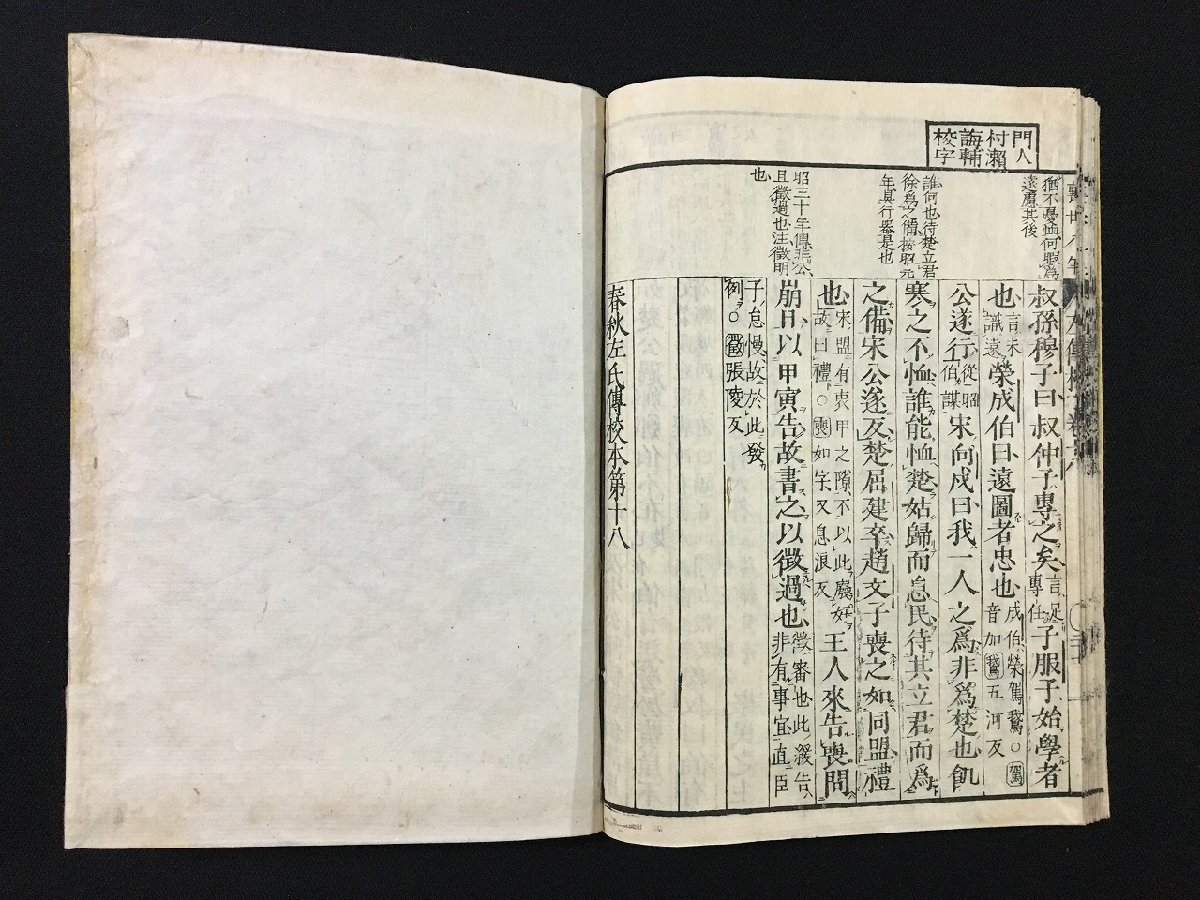 門人
村瀬
誨輔
校字
猶不憂恤何暇為
遠慮其後
誰何也待楚立君
徐為之備按昭元
年具行器是也
昭三十年傳非公
且徵過也注徵明
也
襄廿八年
叔孫穆子曰叔仲子專之矣言足專任子服子始學者
也言未識遠榮成伯曰遠圖者忠也成伯榮駕鵞○駕音加鵞五河反
公遂行從昭伯謀宋向戌曰我一人之為非為楚也飢
寒之不恤誰能恤楚姑歸而息民待其立君而為
之備宋公遂反楚屈建卒趙文子喪之如同盟禮
也宋盟有衷甲之隙不以此廢好故曰禮○喪如字又息浪反王人來告喪問
崩日以甲寅告故書之以徵過也徵審也此緩告非有事宜直臣
子怠慢故於此發
例○徵張陵反
春秋左氏傳校本第十八